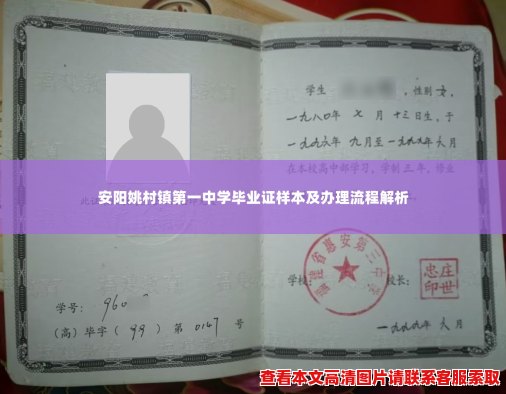 学生
，性别 女，
一九八〇年 七 月 十三日生，于
一九九六年 九月至一九九九年六月
在本校高中部学习，学制三年，修业
安阳姚村镇第一中学毕业证样本及办理流程解析
福建省惠安第三中学
学校
校长：
庄世忠印
学号： 960
（高）毕字（ 99 ）第 0147 号
一九九九年 六 月
查看本文高清图片请联系客服索取